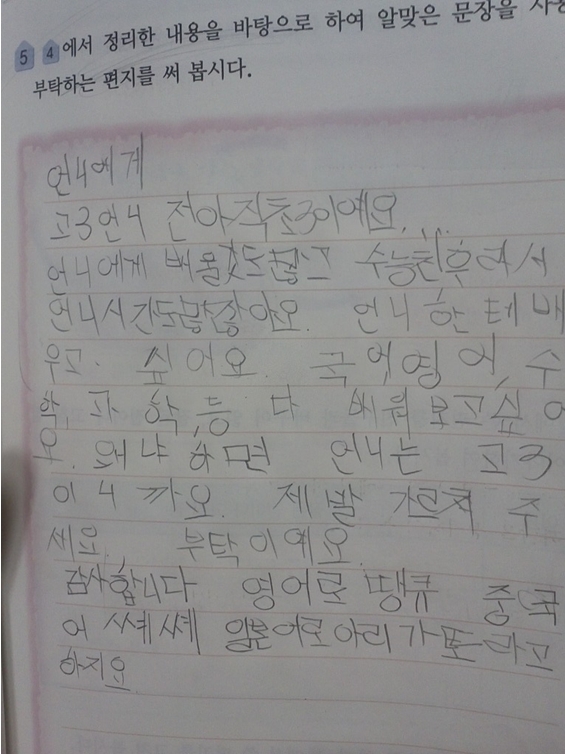 5 4 에서 정리한 내용을 바탕으로 하여 알맞은 문장을 사용
부탁하는 편지를 써 봅시다.
언니에게
고3언니 전아직초3이예요...
언니에게 배울것도많고 수능친후라서
언니시간도많잖아요. 언니 한테 배
우고 싶어요. 국어,영어,수
학,과학,등 다 배워보고싶어
요. 왜냐하면 언니는 고3
이니까요. 제발 가르쳐 주
세요. 부탁이예요.
감사합니다 영어로 땡큐 중국
어 쎼쎼 일본어로아리가또라고
하지요.